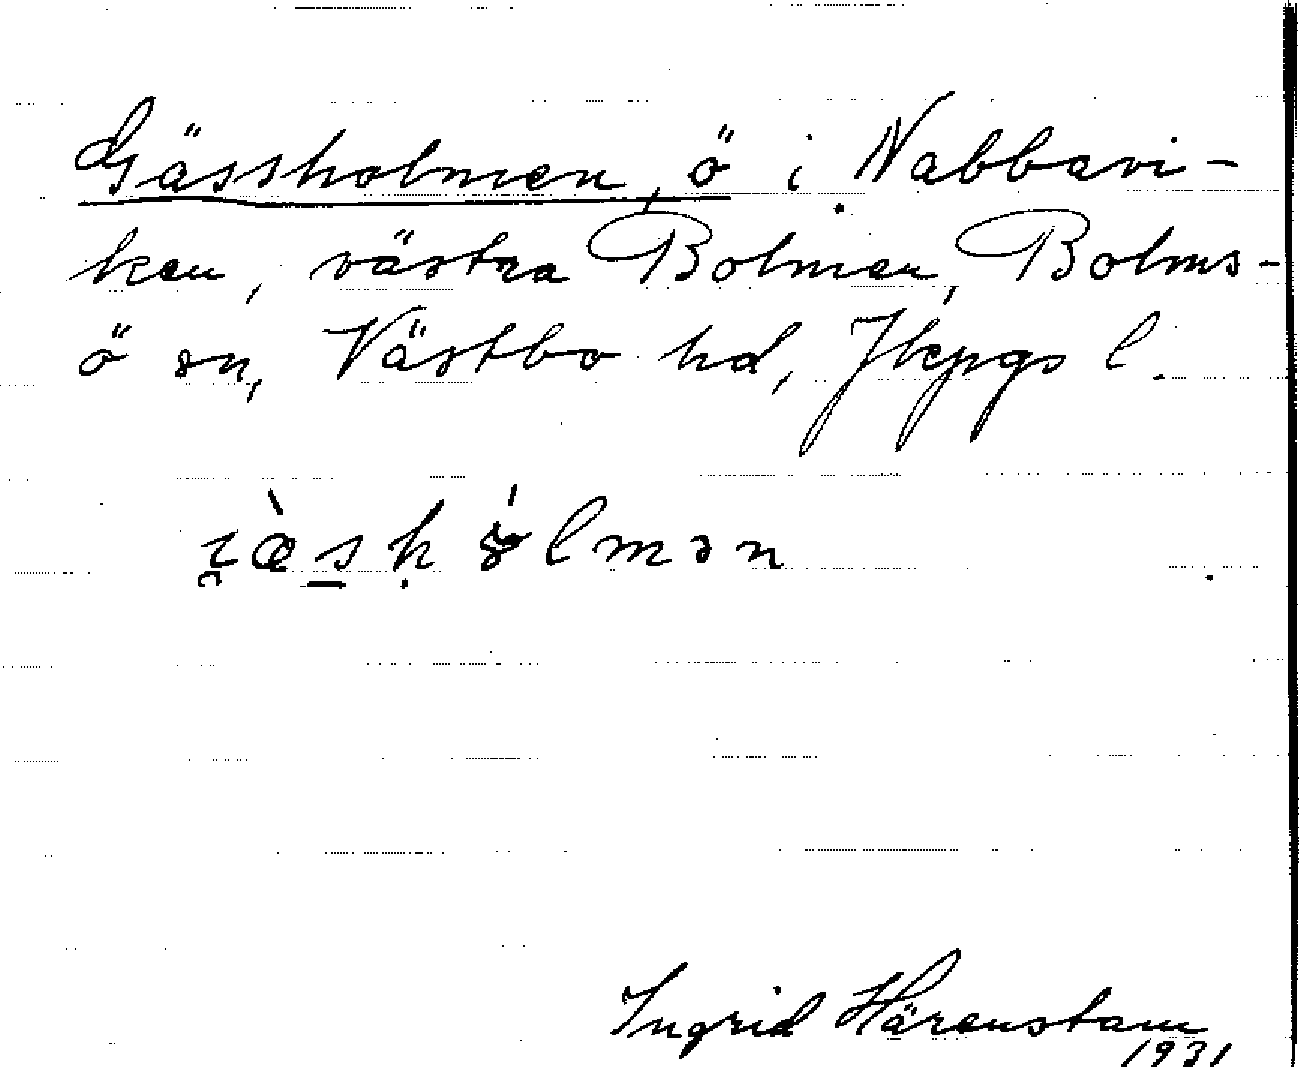 Gässholmen, ö i Nabbavi-
ken, västra Bolmen, Bolms-
ö sn, Västbo hd, Jkpgs l.
Ingrid Härenstam
1931